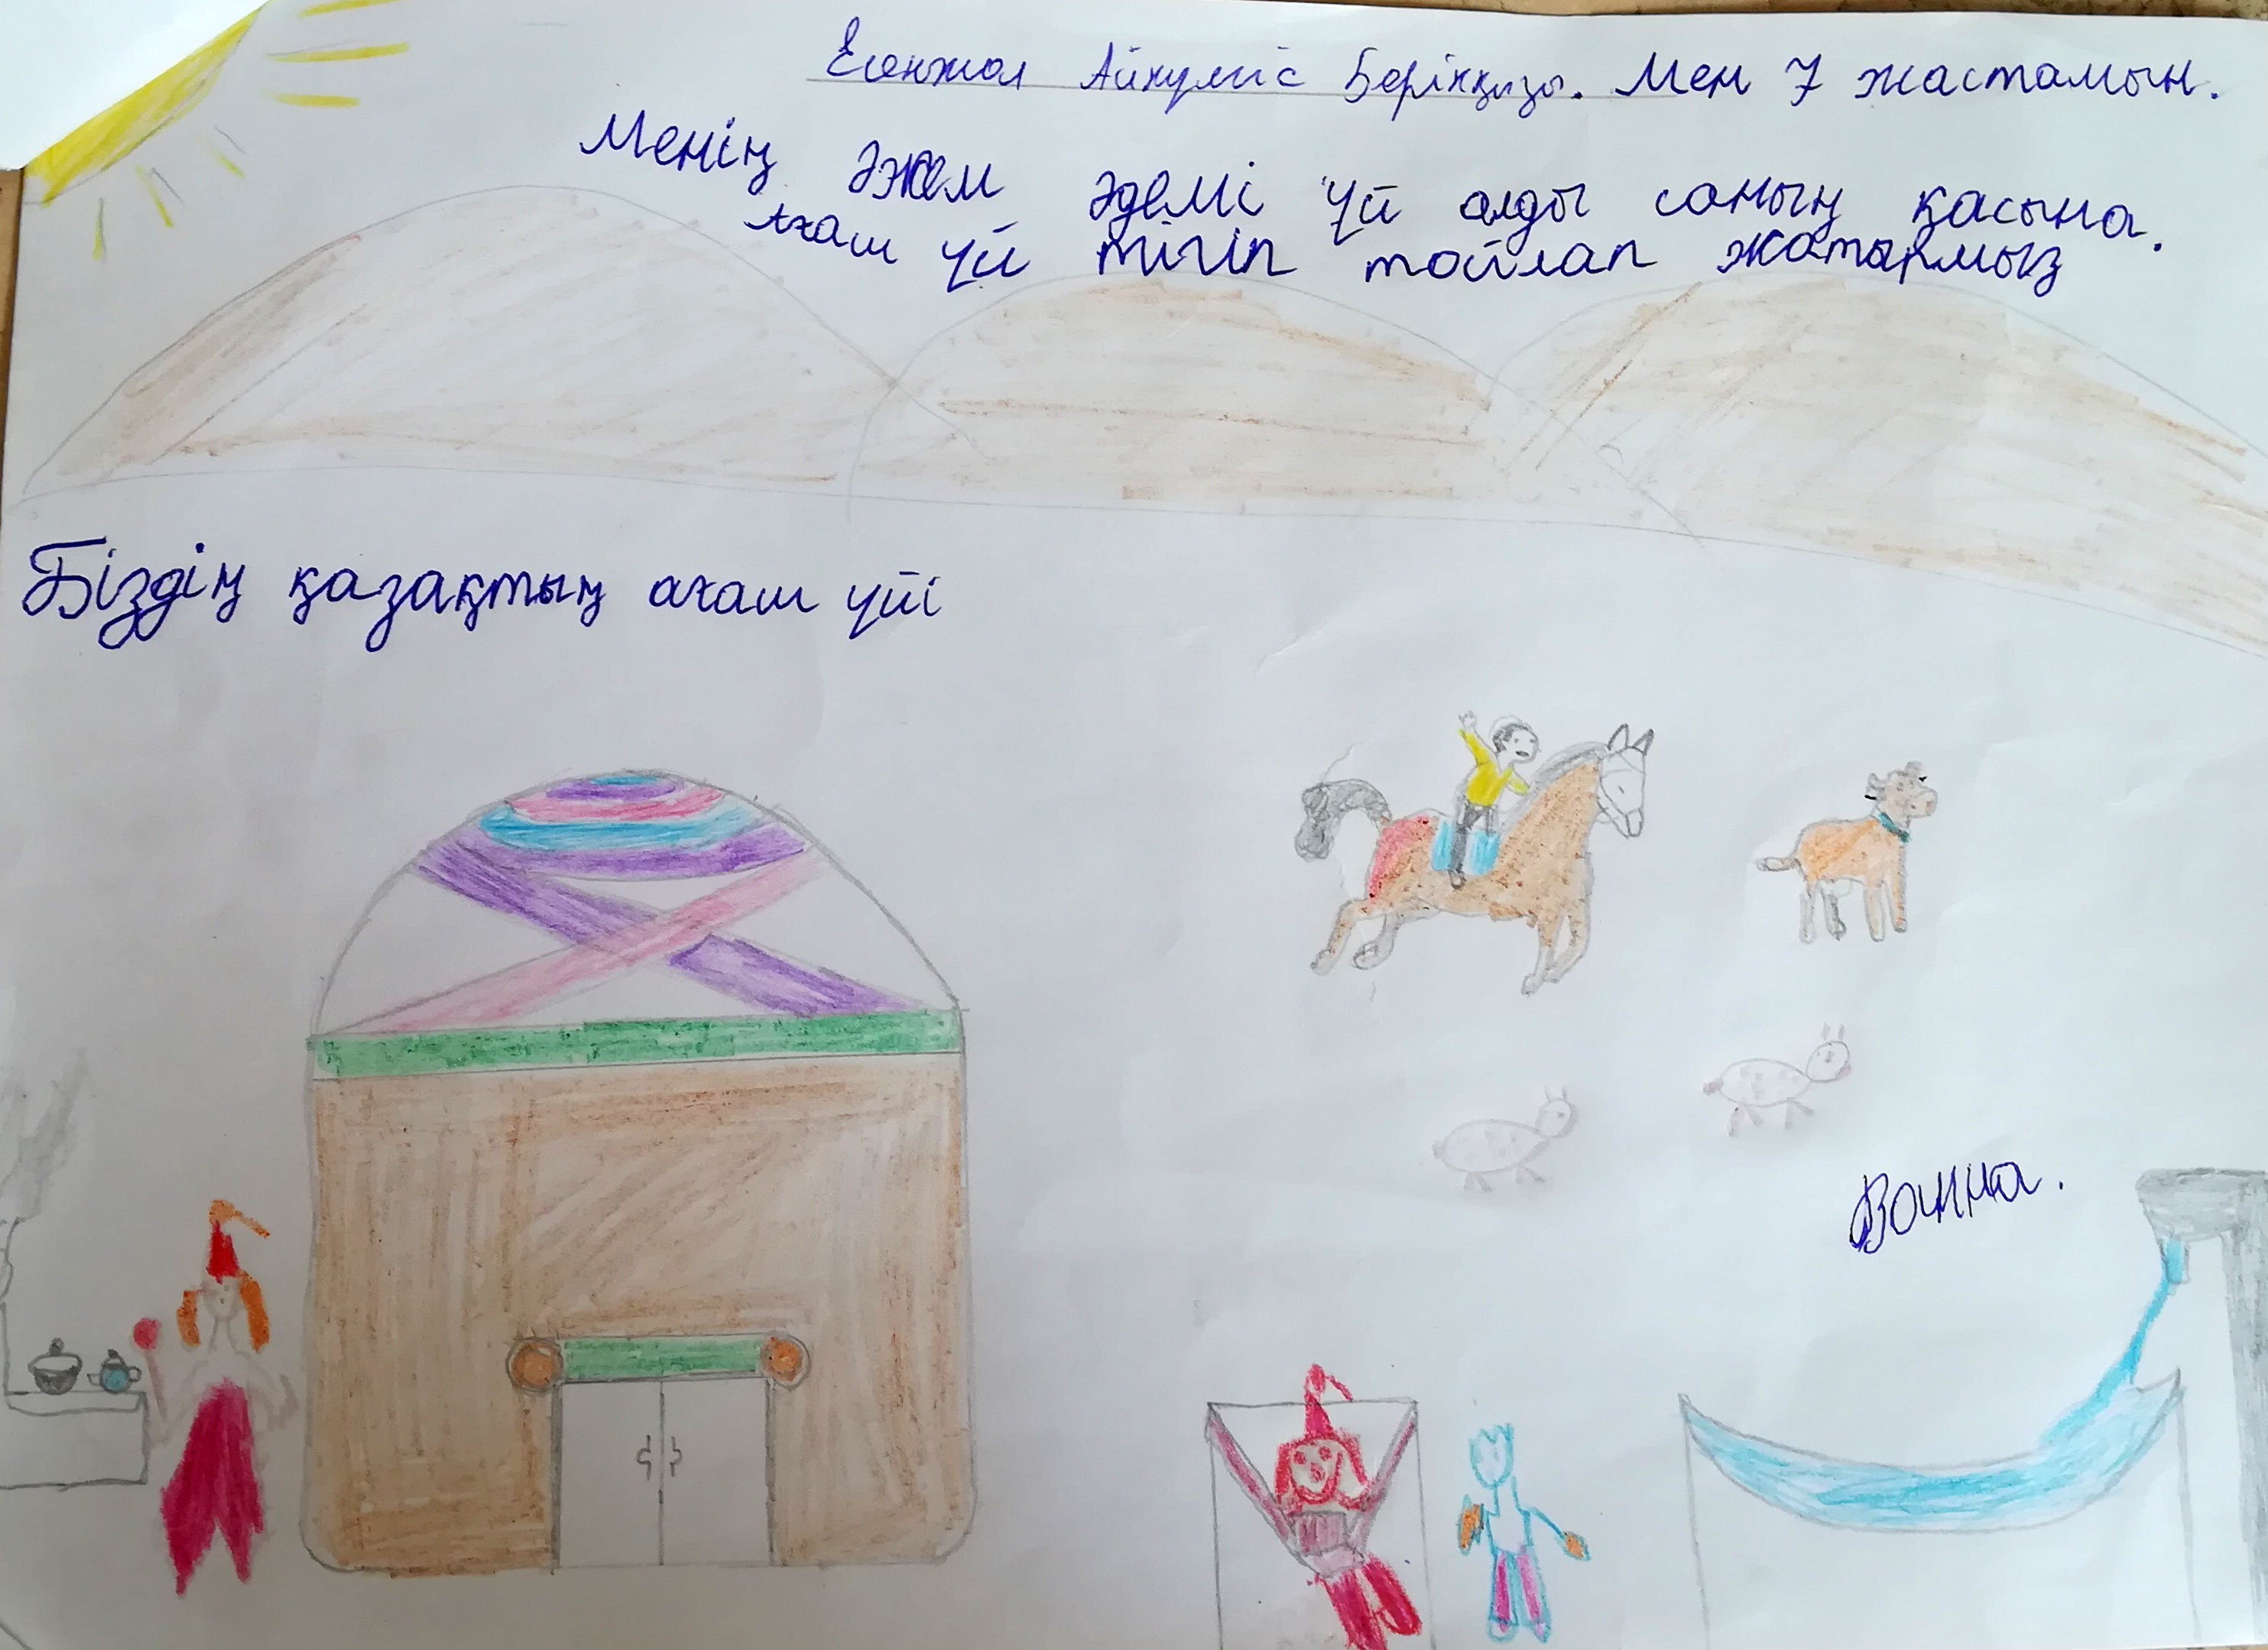 Есенжол Айкүміс Берікқызы. Мен 7 жастамын.
Менің әжем әдемі үй алды соның қасына.
Ағаш үй тігіп тойлап жатырмыз
Біздің қазақтың ағаш үйі
Ванна.